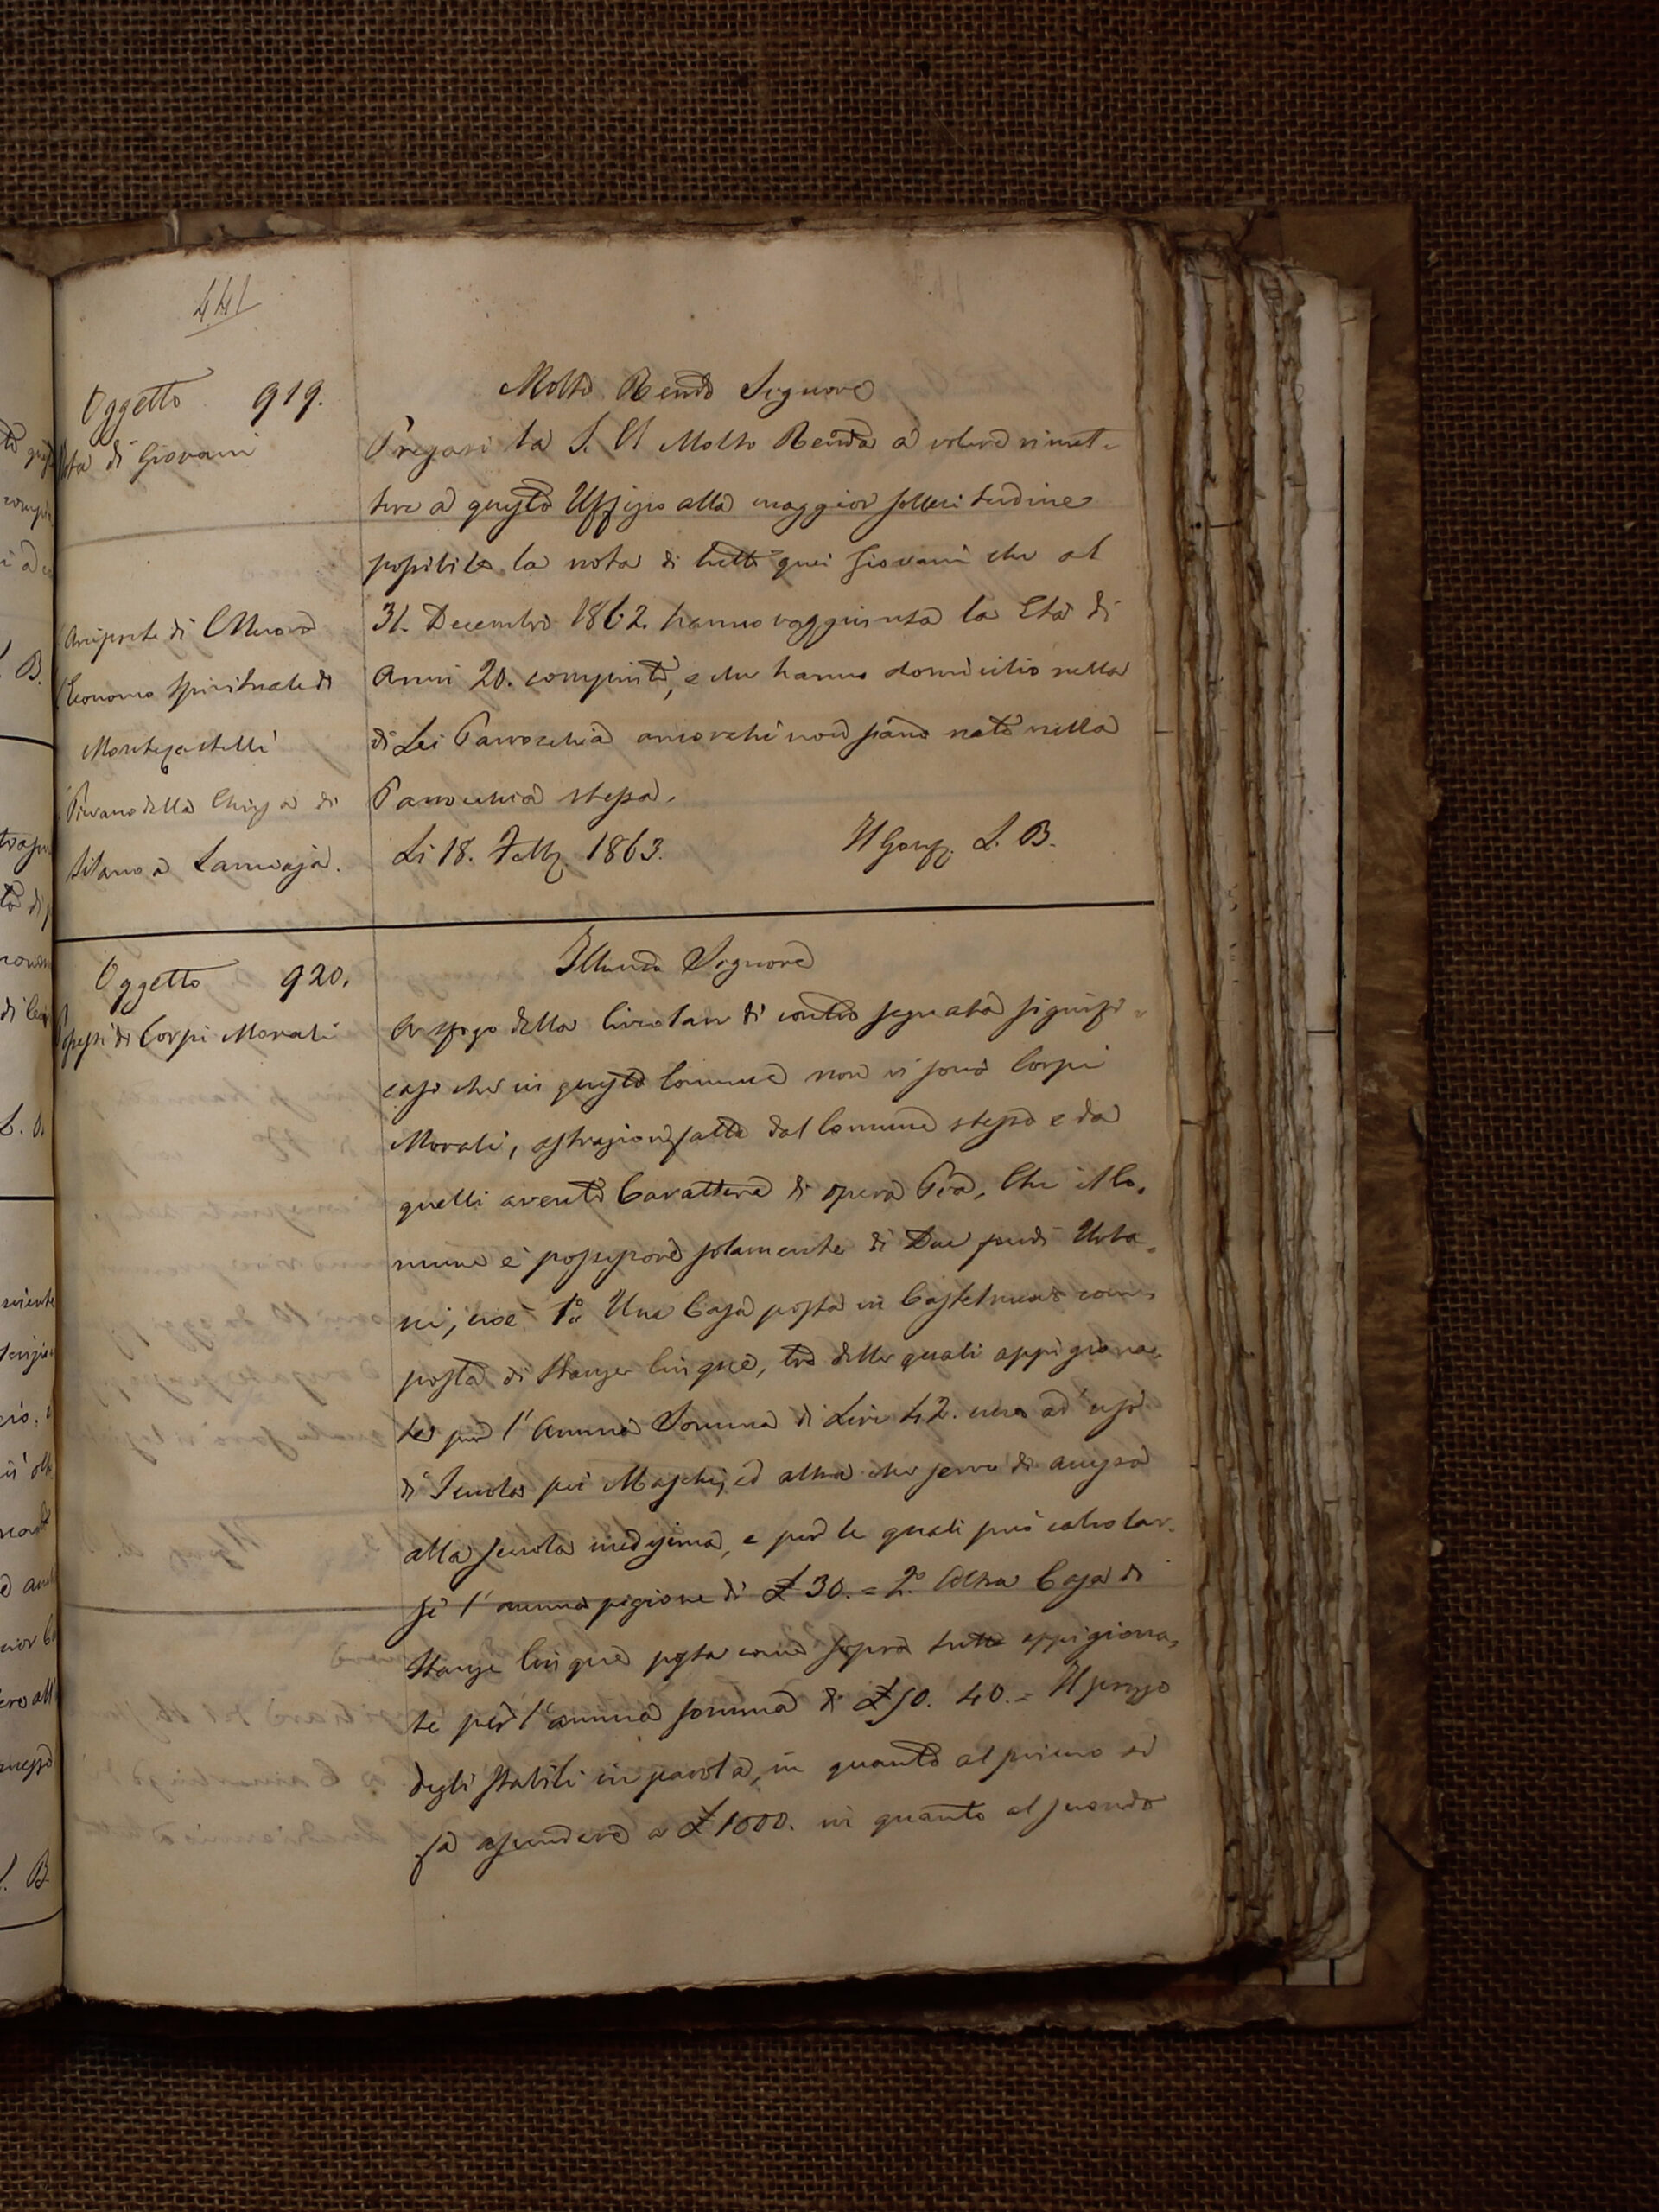 441
Oggetto 919.
Nota di Giovani
Arciprete di
Economo Spirituale di
Montecastelli
Pievano della Chiesa di
Silano a Lanciaja.
Molto Rendo Signore
Pregasi la S. V. Molto Renda a volere rimet-
tere a questo Uffizio alla maggior sollecitudine
possibile la nota di tutti quei Giovani che al
31. Decembre 1862. hanno raggiunta la Età di
Anni 20. compiuti, e che hanno domicilio nella
di Lei Parrocchia ancorchè non siano nati nella
Parrocchia stessa.
Li 18. Febb. 1863. Il Gonf. L. B.
Oggetto 920.
Corpi Morali
Illmo Signore
A sfogo della Circolare di contro segnata signifi-
casi che in questo Comune non vi sono Corpi
Morali, astrazione fatta dal Comune stesso e da
quelli aventi Carattere di opera Pia, Che il Co-
mune è possessore solamente di Due fondi Urba-
ni, cioè 1.° Una Casa posta in Castelnuovo com-
posta di Stanze Cinque, tre delle quali appigiona-
te per l'Annua Somma di Lire 42. una ad uso
di Scuola pei Maschj, ed altra che serve di annesso
alla scuola medesima, e per le quali può calcolar-
si l'annua pigione di £ 30. = 2.° Altra Casa di
Stanze Cinque posta come sopra tutte appigiona-
te per l'annua somma di £ 50. 40. = Il prezzo
degli Stabili in parola, in quanto al primo si
fa ascendere a £ 1000. in quanto al secondo